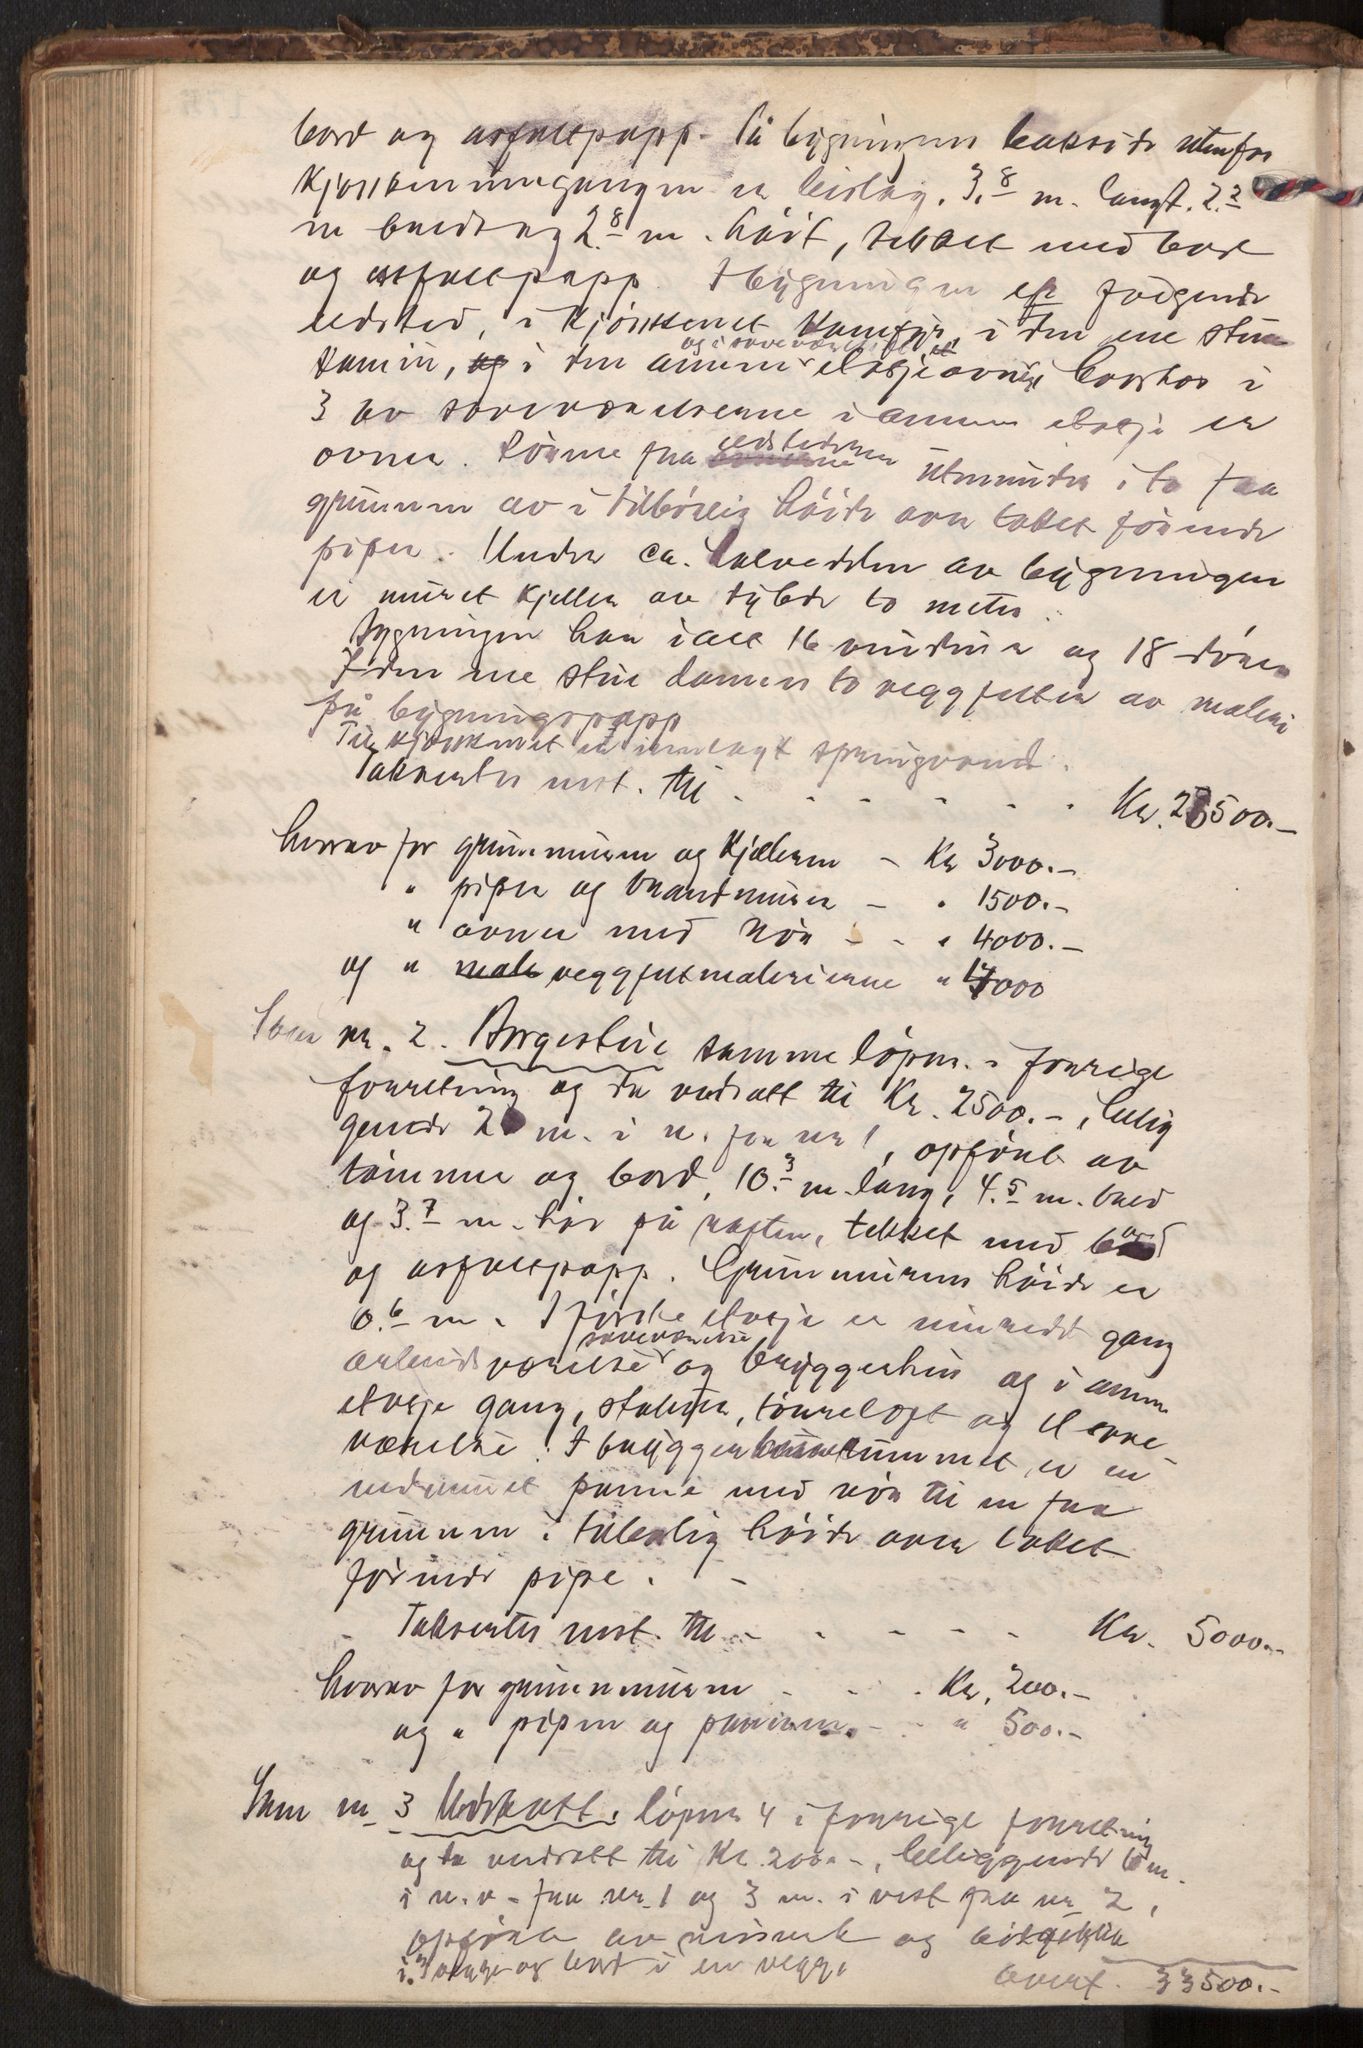 bord og asfaltpapp. På bygningens bakside utenfor
kjökkeninngangen er bislag, 3.8 m. langt, 2.2
m bredt og 2.8 m. höit, tekket med bord
og asfaltpapp. I bygningen er fölgende
ildsted, i kjökkenet komfyr, i den ene stue
kamin, og i den annen og i soveværelset et etasje ovner, hvorhos i
3 av soveværelserne i annen etasje er
ovner. Rörene fra ildstederne utmunder i to fra
grunnen av i tilbörlig höide over taket förende
piper. Under ca. halvedelen av bygningen
er muret kjeller av dybde to meter.
Bygningen har i alt 16 vinduer og 18 dörer
I den ene stue dannes to veggfelter av maleri
på bygningspapp
Til kjökkenet er innlagt springvand.
Takseres nest. til - - - - - - Kr. 28500.-
hvorav for grunnmuren og kjelleren - Kr 3000.-
" piper og brandmurer - " 1500.-
" ovner med rör - - " 4000.-
og " veggfeltmalerierne "
Som nr. 2. Borgestue samme löpnr. i forrige
forretning og da verdsatt til Kr. 2500.-, belig
gende 2 m. i n. fra nr 1, opfört av
tömmer og bord, 10.3 m. lang, 4.5 m. bred
og 3.7 m. höi på raften, tekket med bord
og asfaltpapp. Grunnmurens höide er
0.6 m. I förste etasje er innredet gang
arbeidsværelse soveværelse og bryggerhus og i annen
etasje gang, stabur, törreloft og et sove
værelse. I bryggerhusrummet er en
nedmuret panne med rör til en fra
grunnen i tilbörlig höide over taket
förende pipe. -
Takseres nest. til - - - - - Kr. 5000.-
hvorav for grunnmuren - - . Kr. 200.-
og " pipen og pannen. - - " 500.-
Som nr 3 Vedskott, löpnr 4 i forrige forretning
og da verdsatt til Kr. 200.-, beliggende 6 m.
i n.v. fra nr. 1 og 3 m. i vest fra nr 2,
opfört av
i 3 vegger og bord i en vegg.
Overf. 33500.-